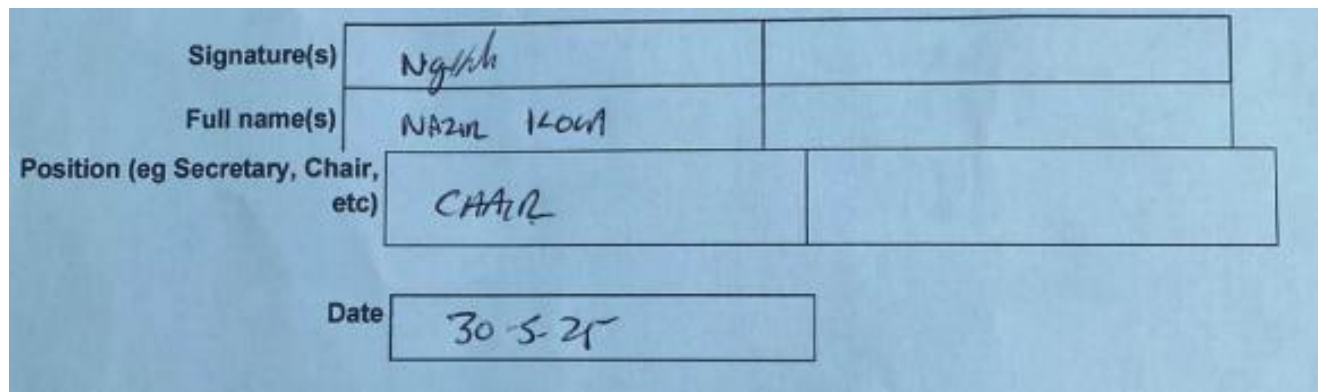 Signature(s)
Full name(s) NAZIR
Position (eg Secretary, Chair,
etc) CHAIR
Date 30-5-25